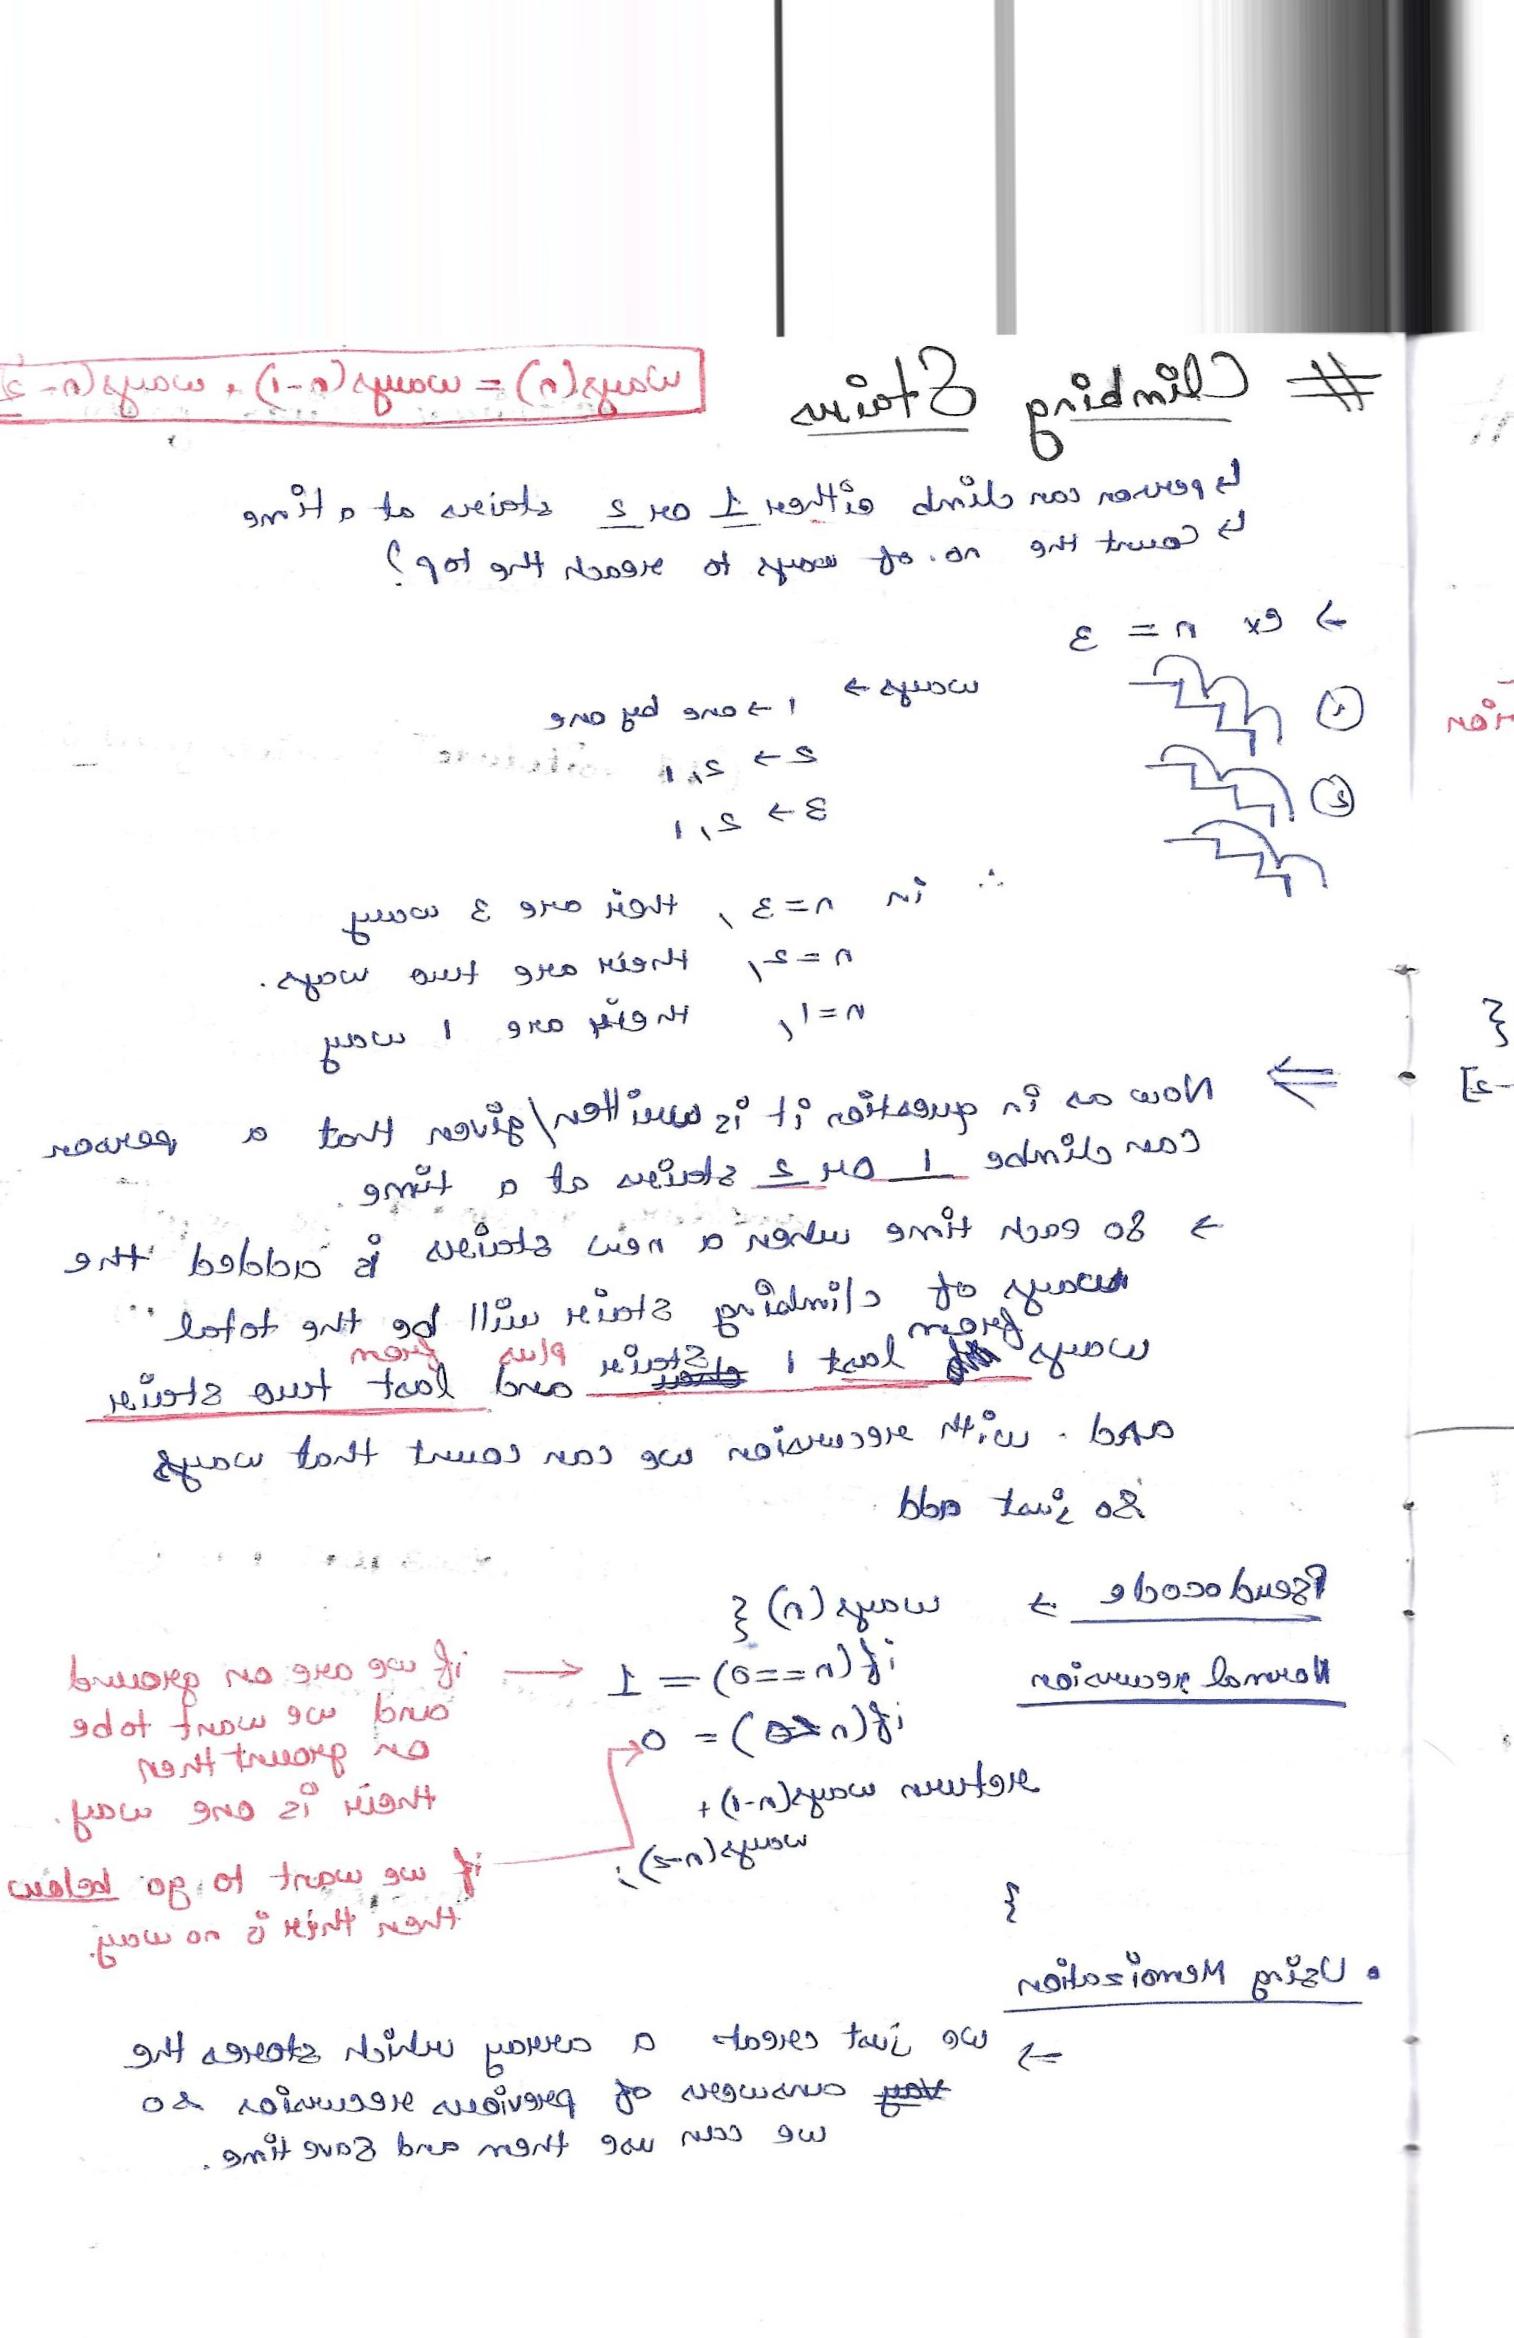 # Climbing Stairs
ways(n) = ways(n-1) + ways(n-2
↳ person can climb either 1 or 2 stairs at a time
↳ Count the no. of ways to reach the top?
→ ex n = 3
① ways → 1 → one by one
② 2 → 2,1
3 → 2,1
∴ in n=3, their are 3 way
n=2, their are two ways.
n=1, their are 1 way
⇒ Now as in question it is written/given that a person
can climbe 1 or 2 stairs at a time.
→ So each time when a new stairs is added the
ways of climbing stair will be the total
ways from last 1 stair plus and from last two stair
and. with recursion we can count that ways
So just add
Pseudocode → ways(n) {
Normal recursion
if(n==0) = 1 ← if we are on ground
and we want to be
on grount then
their is one way.
if(n<0) = 0
return ways(n-1) +
ways(n-2);
if we want to go below
then their is no way.
}
• Using Memoization
→ we just creat a array which stores the
answers of previous recursion so
we can use them and save time.
tion
}
-2]